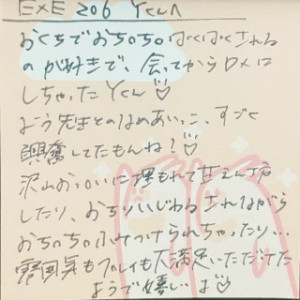 EXE 206 Yくんへ
おくちでおちのちのぱくぱくされる
のが好きで、会ってからDMは
しちゃったYくん♡
よう先生とのなめあいっこ、すごく
興奮してたもんね！♡
沢山おっぱいに埋もれて甘えん坊
したり、おちりいじわるされながら
おちのちのふみつけられちゃったり…
雰囲気もプレイも大満足いただけた
ようで嬉しいよ♡